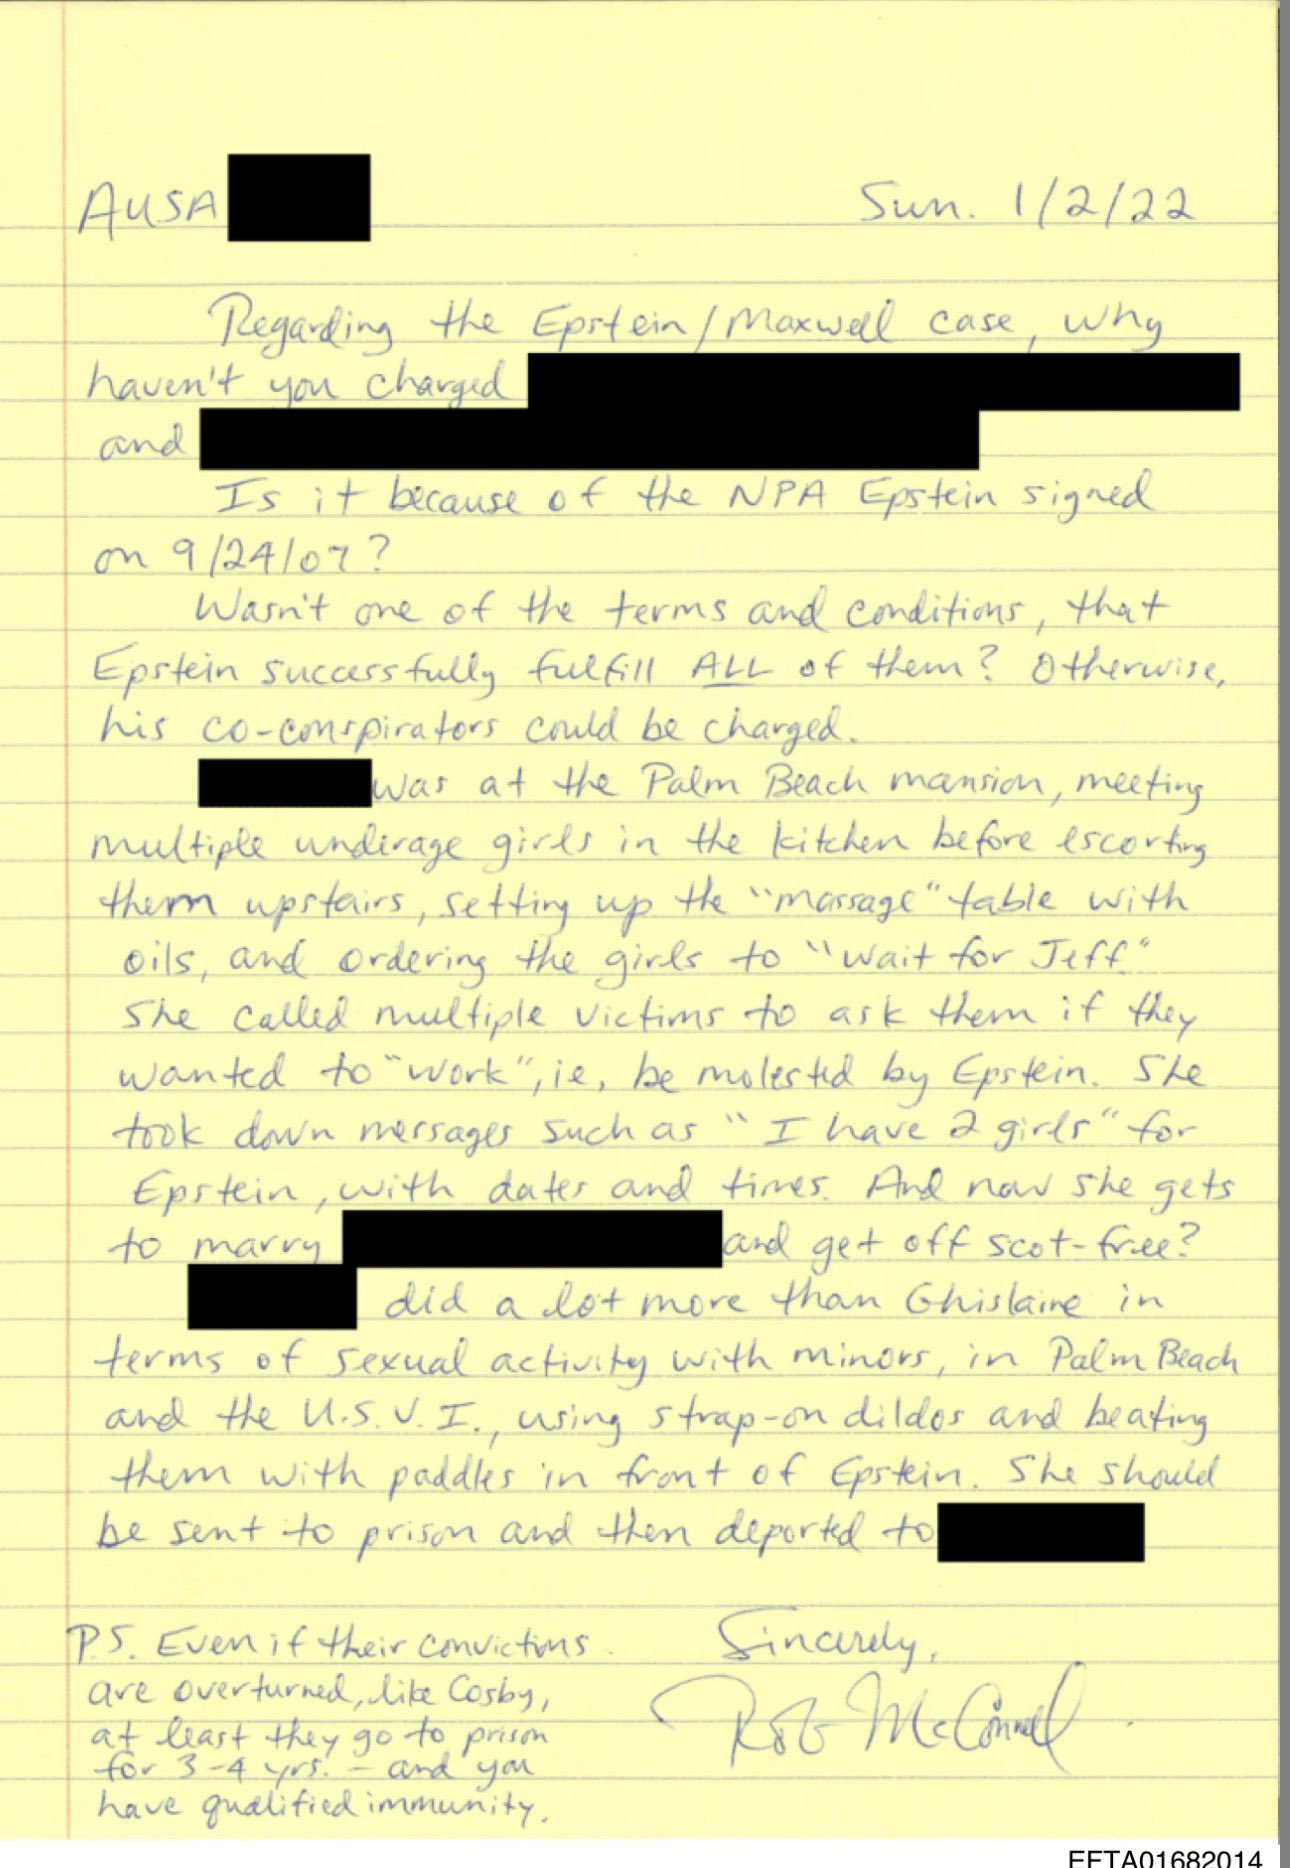 AUSA
Sun. 1/2/22
Regarding the Epstein/Maxwell case, why
haven't you charged
and
Is it because of the NPA Epstein signed
on 9/24/07?
Wasn't one of the terms and conditions, that
Epstein successfully fulfill ALL of them? Otherwise,
his co-conspirators could be charged.
was at the Palm Beach mansion, meeting
multiple underage girls in the kitchen before escorting
them upstairs, setting up the "massage" table with
oils, and ordering the girls to "wait for Jeff."
She called multiple victims to ask them if they
wanted to "work", ie, be molested by Epstein. She
took down messages such as "I have 2 girls" for
Epstein, with dates and times. And now she gets
to marry and get off scot-free?
did a lot more than Ghislaine in
terms of sexual activity with minors, in Palm Beach
and the U.S.V.I., using strap-on dildos and beating
them with paddles in front of Epstein. She should
be sent to prison and then deported to
P.S. Even if their convictions
are overturned, like Cosby,
at least they go to prison
for 3-4 yrs. - and you
have qualified immunity.
Sincerely,
Rob McConnell
EFTA01682014